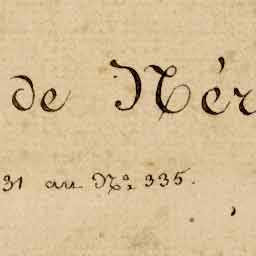 de Nér
31 au N.º 335.